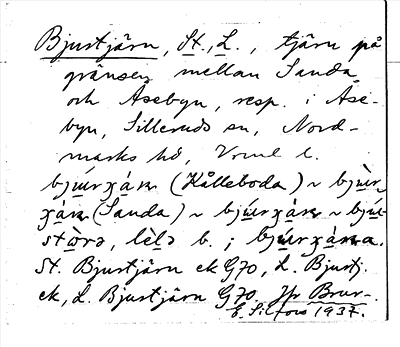 Bjustjärn, St., L., tjärn på
gränsen mellan Sanda
och Åsebyn, resp. i Åse-
byn, Silleruds sn, Nord-
marks hd, Vrml l.
bju̇rχȧ́rn (Kålleboda) ~ bju̇r-
χȧrn (Sanda) ~ bju̇rχȧrn ~ bju̇-
stȯrə, lėlə b. ; bju̇rχȧrna.
St. Bjustjärn ek G70, L. Bjustj.
ek, L. Bjustjärn G70. Jfr Brur-.
E. Silfors 1937.